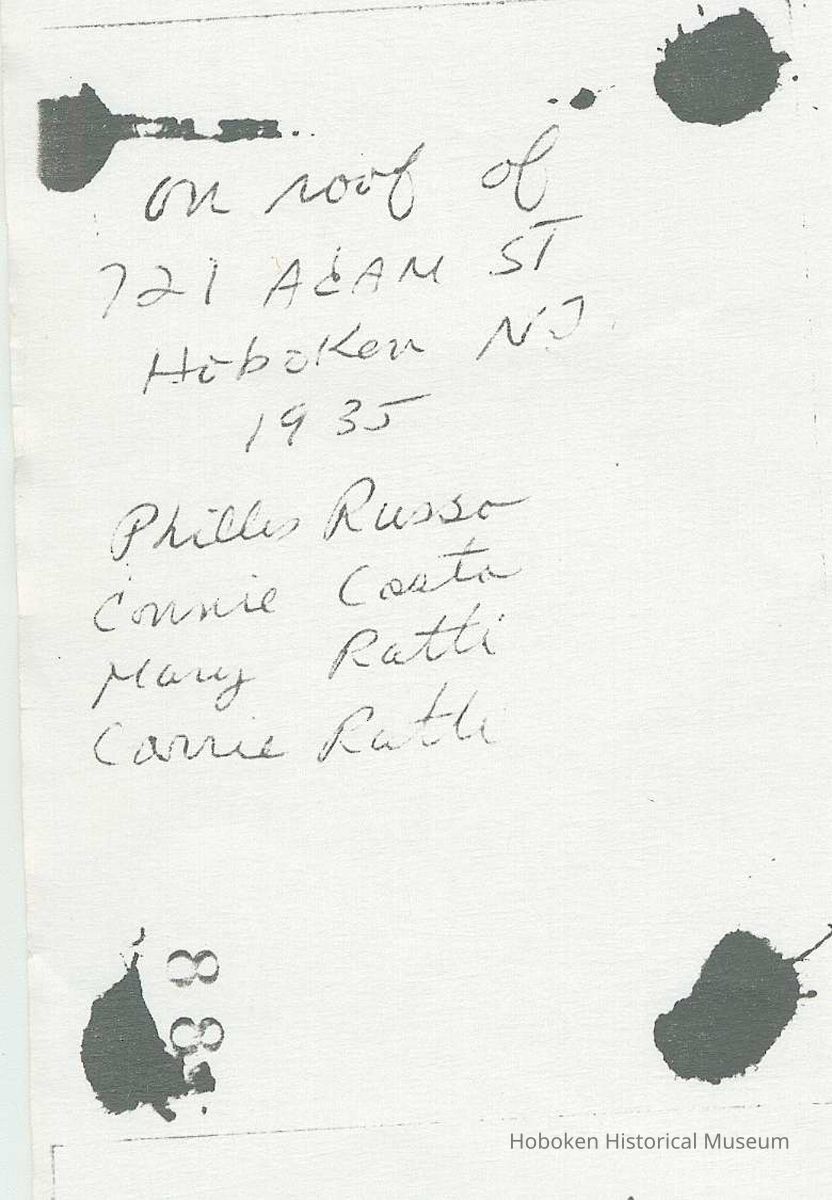 on roof of
721 ADAM ST
Hoboken NJ
1935
Phillis Russo
Connie Costa
Mary Ratti
Carrie Ratti
88
Hoboken Historical Museum